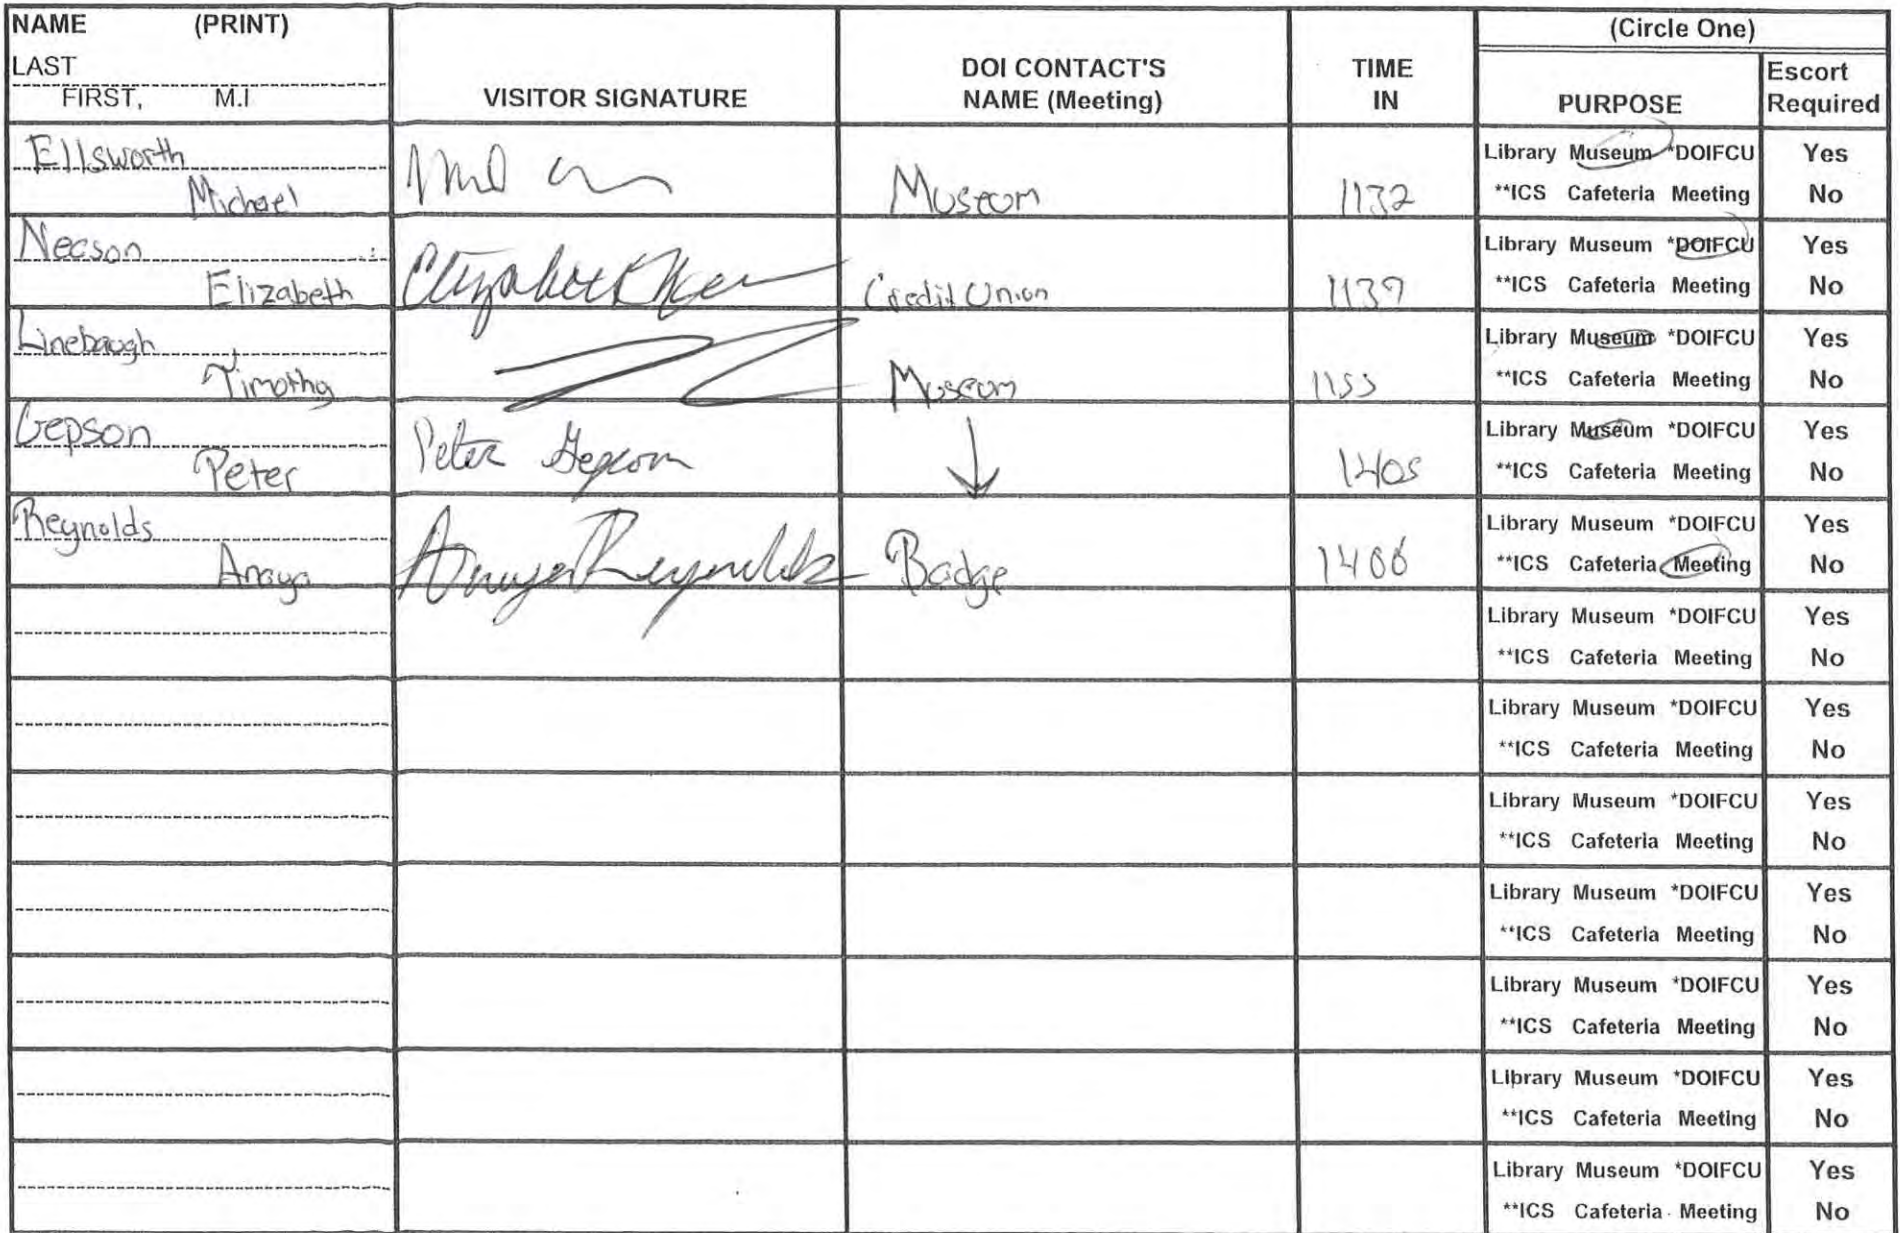 NAME (PRINT)
LAST
FIRST, M.I
VISITOR SIGNATURE
DOI CONTACT'S
NAME (Meeting)
TIME
IN
(Circle One)
PURPOSE
Escort
Required
Ellsworth
Michael
Museum
1132
Library Museum *DOIFCU Yes
**ICS Cafeteria Meeting No
Necson
Elizabeth
Credit Union
1139
Library Museum *DOIFCU Yes
**ICS Cafeteria Meeting No
Linebaugh
Timothy
Museum
1153
Library Museum *DOIFCU Yes
**ICS Cafeteria Meeting No
Gepson
Peter
Peter Gepson
1405
Library Museum *DOIFCU Yes
**ICS Cafeteria Meeting No
Reynolds
Anaya
Anaya Reynolds
Badge
1406
Library Museum *DOIFCU Yes
**ICS Cafeteria Meeting No
Library Museum *DOIFCU Yes
**ICS Cafeteria Meeting No
Library Museum *DOIFCU Yes
**ICS Cafeteria Meeting No
Library Museum *DOIFCU Yes
**ICS Cafeteria Meeting No
Library Museum *DOIFCU Yes
**ICS Cafeteria Meeting No
Library Museum *DOIFCU Yes
**ICS Cafeteria Meeting No
Library Museum *DOIFCU Yes
**ICS Cafeteria Meeting No
Library Museum *DOIFCU Yes
**ICS Cafeteria Meeting No